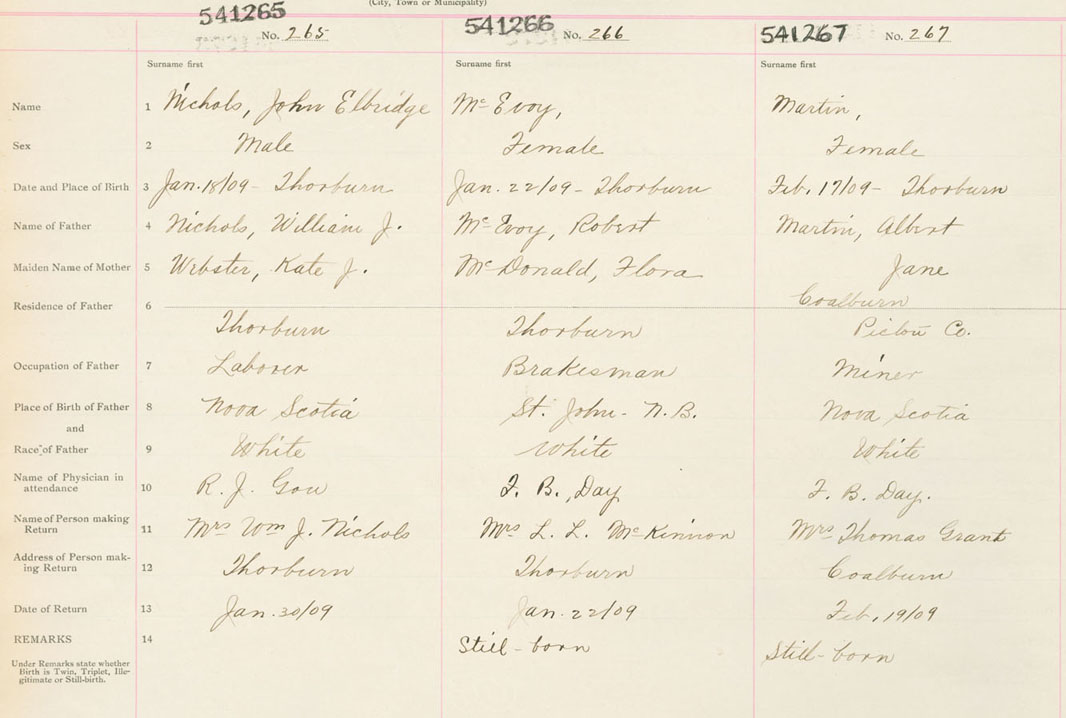 (City, Town or Municipality)
541265 541266 541267
No. 265 No. 266 No. 267
Surname first Surname first Surname first
Name 1 Nichols, John Elbridge Mc Evoy, Martin,
Sex 2 Male Female Female
Date and Place of Birth 3 Jan. 18/09 - Thorburn Jan. 22/09 - Thorburn Feb. 17/09 - Thorburn
Name of Father 4 Nichols, William J. Mc Evoy, Robert Martin, Albert
Maiden Name of Mother 5 Webster, Kate J. Mc Donald, Flora Jane
Residence of Father 6 Coalburn
Thorburn Thorburn Pictou Co.
Occupation of Father 7 Laborer Brakesman Miner
Place of Birth of Father 8 Nova Scotia St. John - N.B. Nova Scotia
and
Race of Father 9 White White White
Name of Physician in
attendance 10 R. J. Gou F. B., Day F. B. Day.
Name of Person making
Return 11 Mrs Wm J. Nichols Mrs L. L. Mc Kinnon Mrs Thomas Grant
Address of Person mak-
ing Return 12 Thorburn Thorburn Coalburn
Date of Return 13 Jan. 30/09 Jan. 22/09 Feb, 19/09
REMARKS 14 Still-born Still-born
Under Remarks state whether
Birth is Twin, Triplet, Ille-
gitimate or Still-birth.